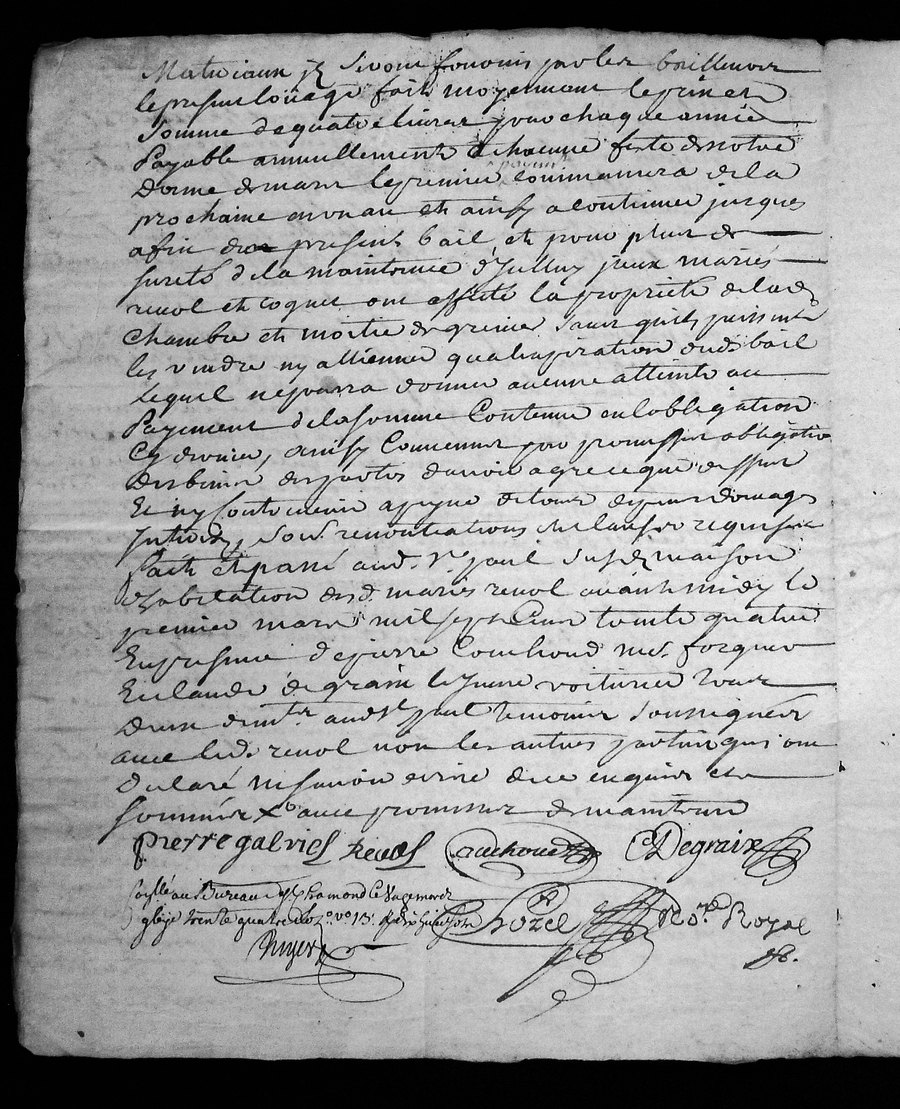 Materiaux Jl seront fournis par les bailleurs
le present loüage fait moyennant le prix et
Somme de quatre livres pour chaque année
Payable annuellement a chacune feste de notre
payement
Dame de mars le premier commancera de la
prochaine en un an et ainsy a continuer jusques
a fin du present bail, et pour plus de
sureté de la maintenue d'Jcelluy jceux mariés
revol et coquet ont affecté la proprieté de lad.
Chambre et moitié de grenier sans quils puissent
les vendre ny alliener qua lexpiration dud. bail
lequel ne pourra donner aucune atteinte au
Payement de la somme Contenue en lobligation
Cy dernier, ainsy Convenu par promesse obligation
des biens des parties davoir agreé ce que dessus
Et ny Contrevenir a peyne de tous depens domages
Jnterets, sous renontiations et clauses requises
Fait et passé aud. St. paul maison
d'habitation desd. mariés revol avant midy le
premier mars mil sept Cent trente quatre
En presence de pierre Couchoud me. forgeur
Et claude degraix le jeune voiturier tous
Deux demts. aud. St paul temoins Soussignés
avec led. revol non les autres parties qui ont
declaré ne savoir ecrire de ce enquises et
sommées avec promesses de maintenir
Pierre galvies Revol Couchoud CDegraix
Conllé au Bureau de St chamond le vingt mars
trente quatre fo. vo. 13. Reçu
Chozel No.re Royal